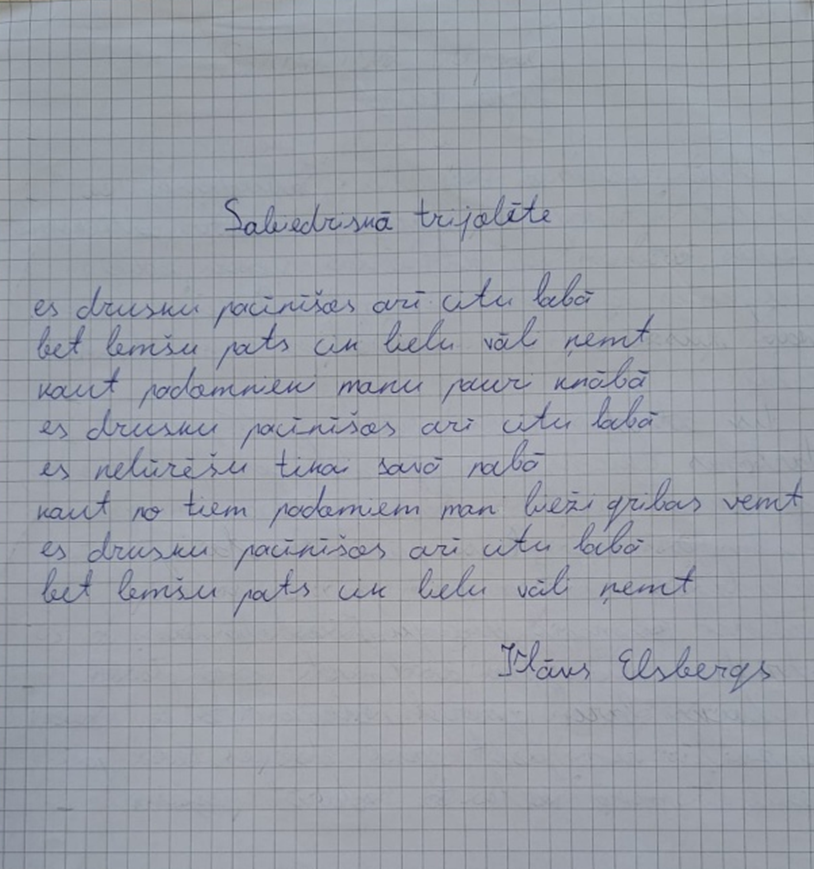 Sabiedriskā trijolēte
es drusku pacīnīšos arī citu labā
bet lemšu pats cik lielu vāli ņemt
kaut padomnieki manu pauri knābā
es drusku pacīnīšos arī citu labā
es nebūrēšu tikai savā nabā
kaut no tiem padomiem man bieži gribas vemt
es drusku pacīnīšos arī citu labā
bet lemšu pats cik lielu vāli ņemt
Klāvs Elsbergs